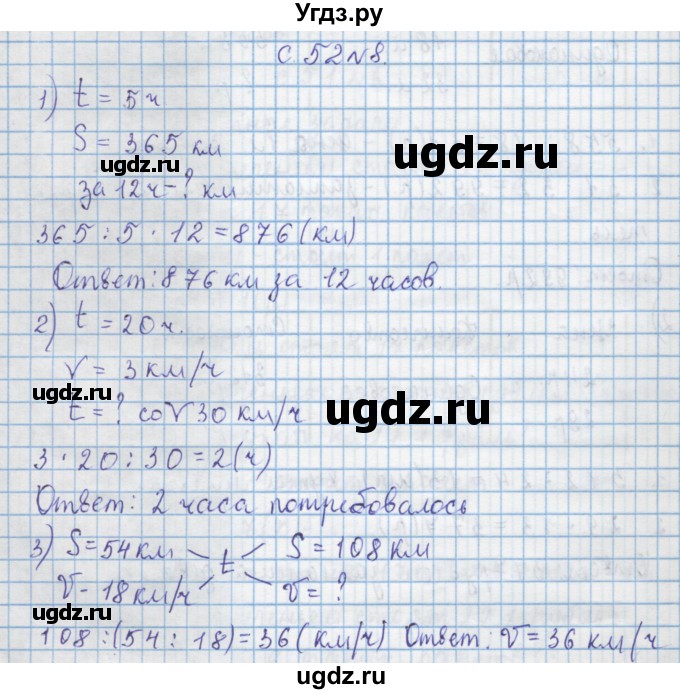 Угдз.ру
С. 52 № 8.
1) t = 5 ч
S = 365 км
ugdz.ru
ugdz.ru
за 12 ч - ? км
365 : 5 · 12 = 876 (км)
Ответ: 876 км за 12 часов.
2) t = 20 ч.
V = 3 км/ч
ugdz.ru
t = ? со V 30 км/ч
ugdz.ru
3 · 20 : 30 = 2 (ч)
Ответ: 2 часа потребовалось
3) S = 54 км t S = 108 км
V - 18 км/ч V = ?
ugdz.ru
108 : (54 : 18) = 36 (км/ч) Ответ: V = 36 км/ч
ugdz.ru